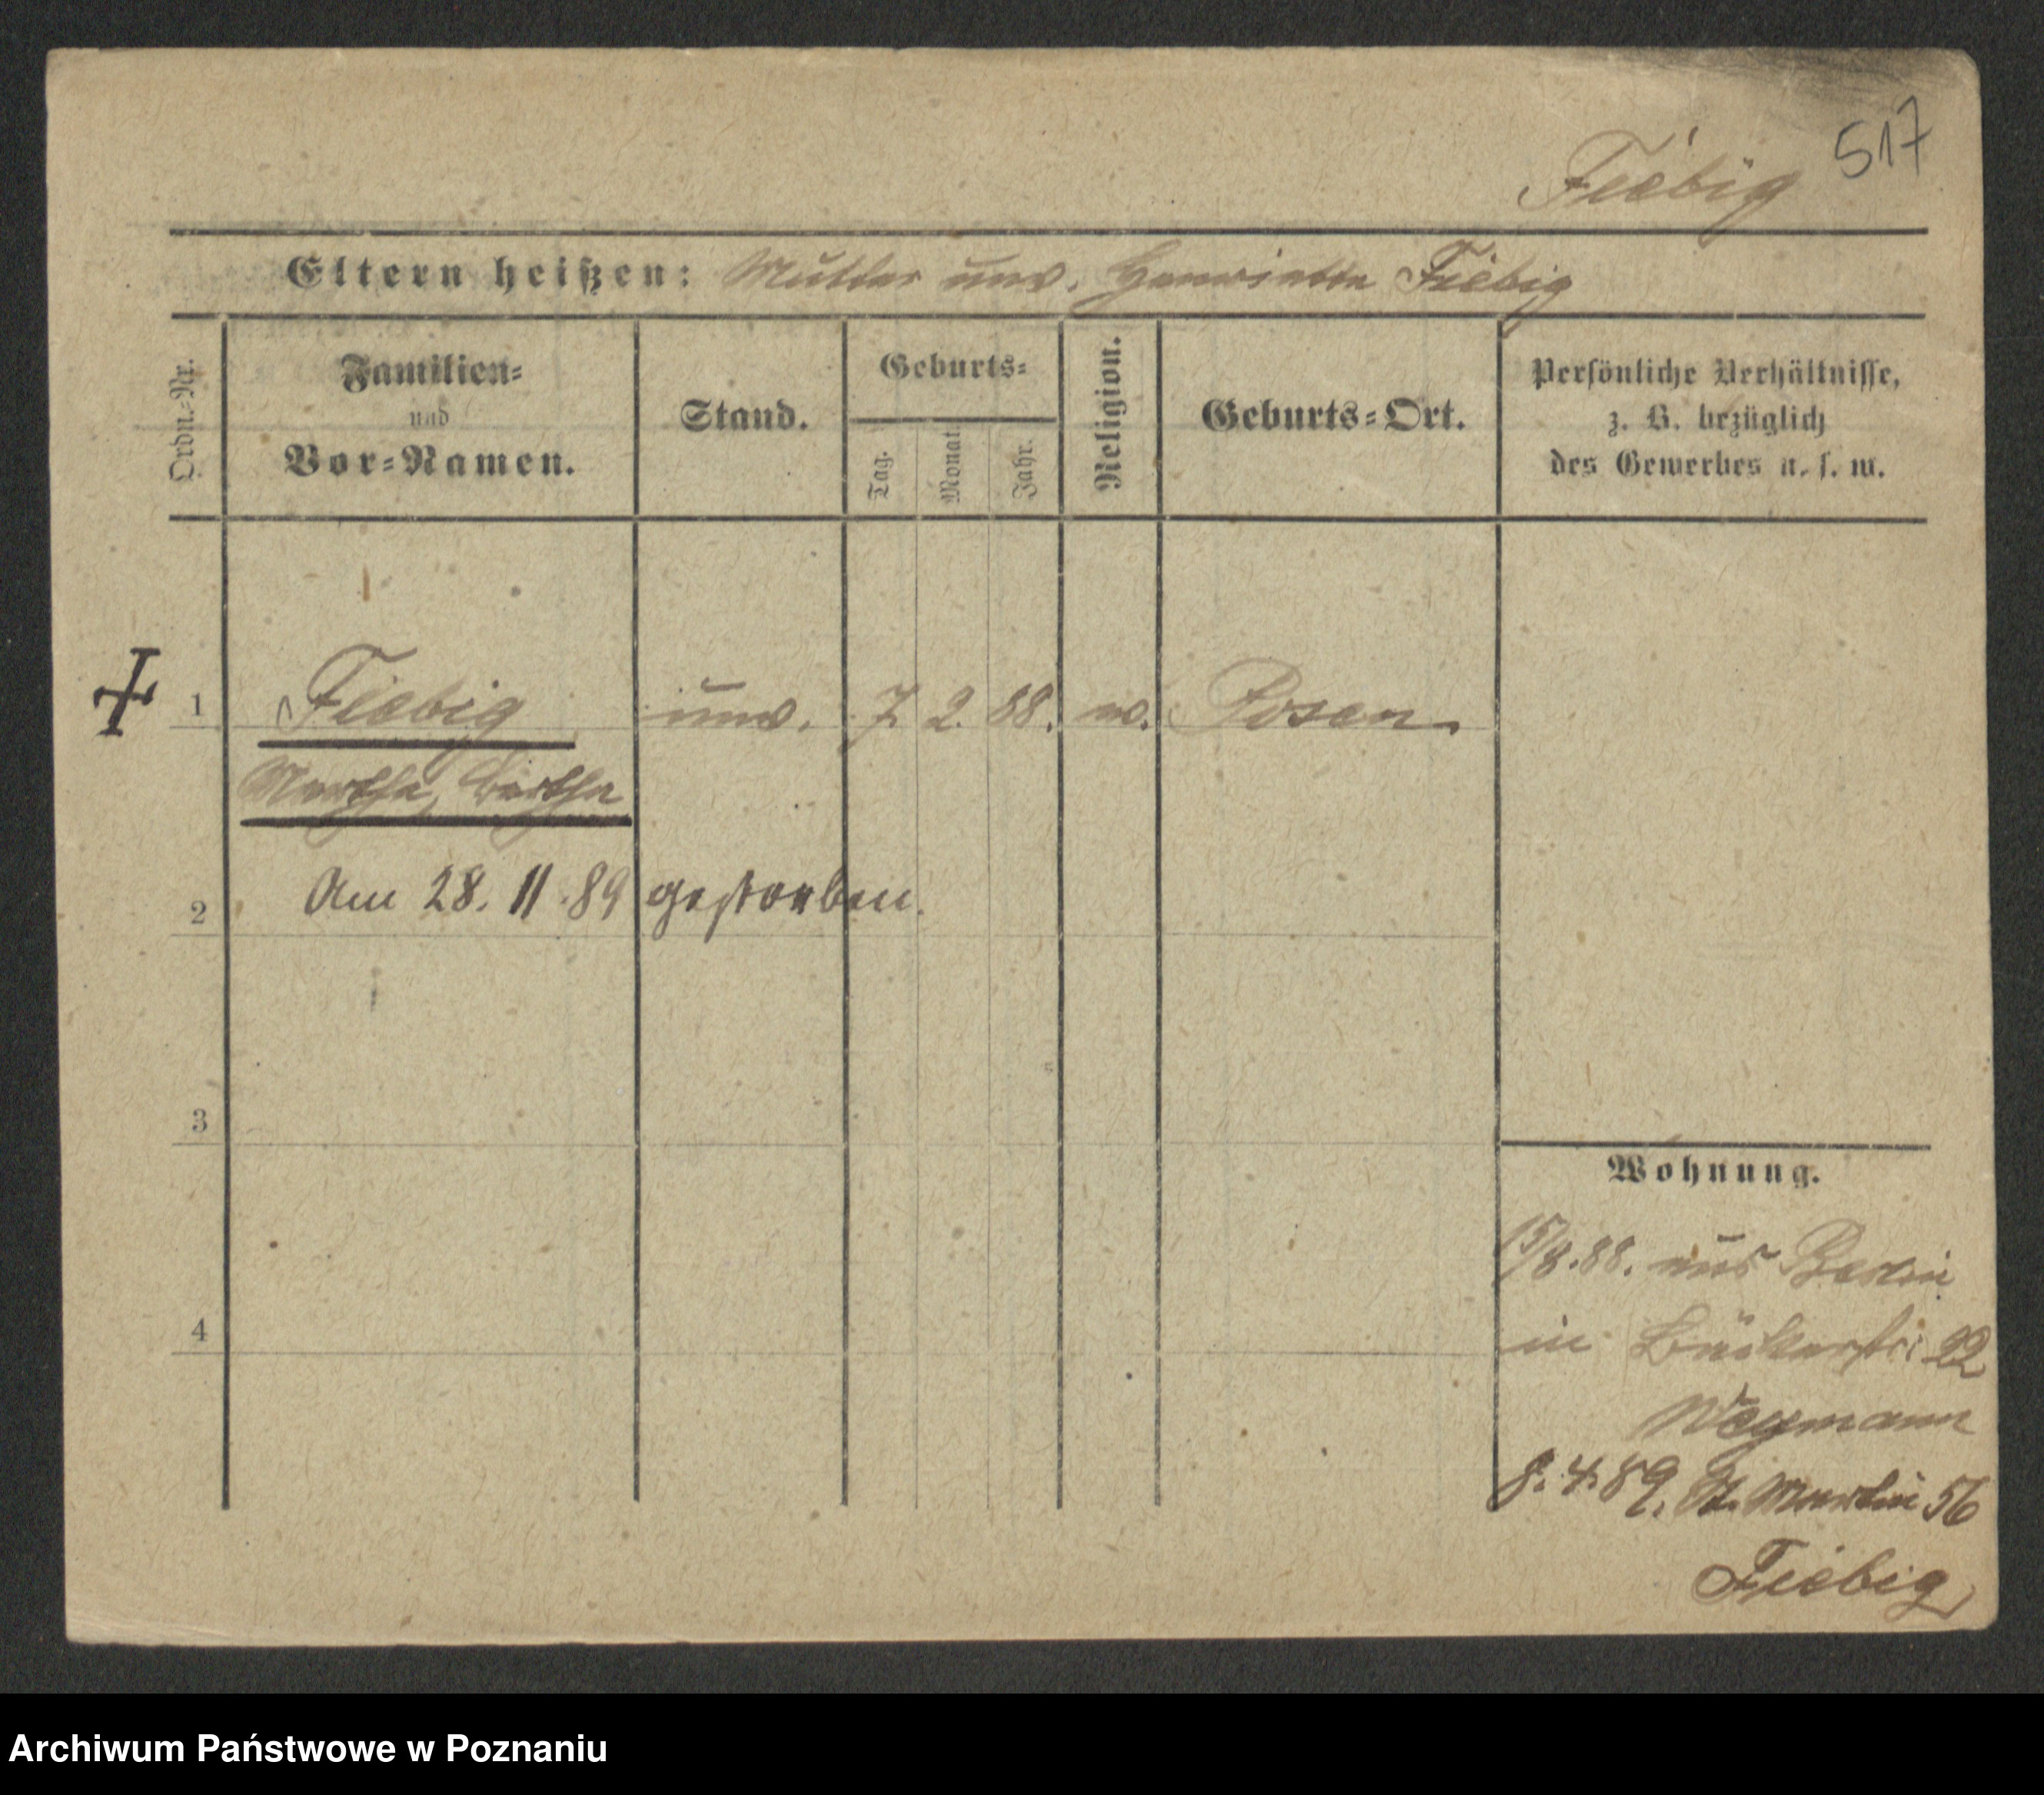 517
Fiebig
Eltern heißen: Mutter unv. Henriette Fiebig
Ordn.-Nr.
Familien-
und
Vor-Namen.
Stand.
Geburts-
Tag.
Monat.
Jahr.
Religion.
Geburts-Ort.
Persönliche Verhältnisse,
z. B. bezüglich
des Gewerbes u. s. w.
1 Fiebig unv. 7. 2. 88. Posen
Martha, Bertha
2 Am 28. 11. 89 gestorben.
3
4
Wohnung.
15/8.88. aus Berlin
in Bäckerstr. 22
Wegmann
8. 4. 89. St. Martin 56
Fiebig
Archiwum Państwowe w Poznaniu